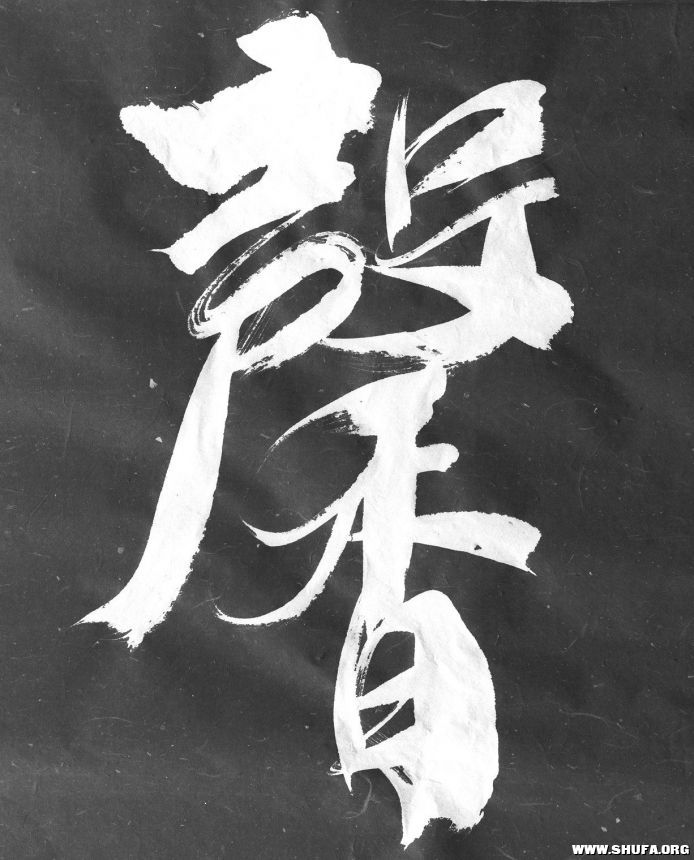 馨
WWW.SHUFA.ORG